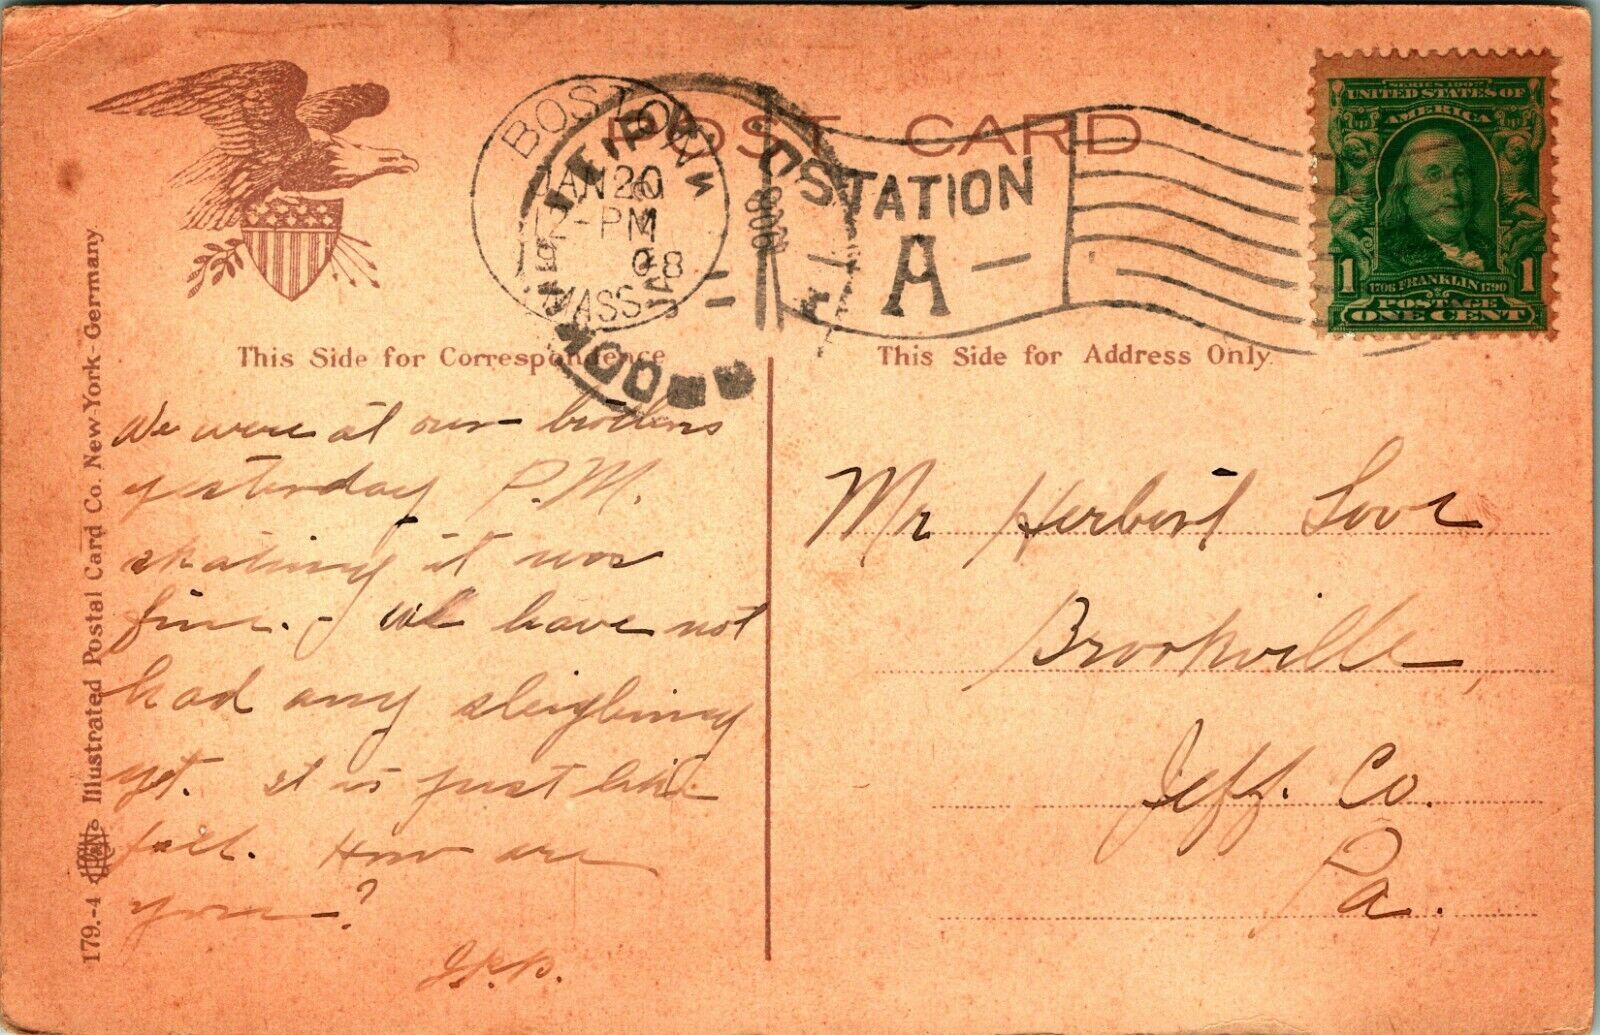 POST CARD
BOSTON
JAN 20
12-PM
08
MASS.
STATION
A
1908
SERIES 1902
UNITED STATES OF
AMERICA
1 1
1706 FRANKLIN 1790
POSTAGE
ONE CENT
This Side for Correspondence
This Side for Address Only.
We were at our brothers
yesterday P.M.
skating it was
fine. - We have not
had any sleighing
yet. It is just like
fall. How are
you?
Mr Herbert Love
Brookville,
Jeff. Co.
Pa.
179.-4 Illustrated Postal Card Co. New-York-Germany